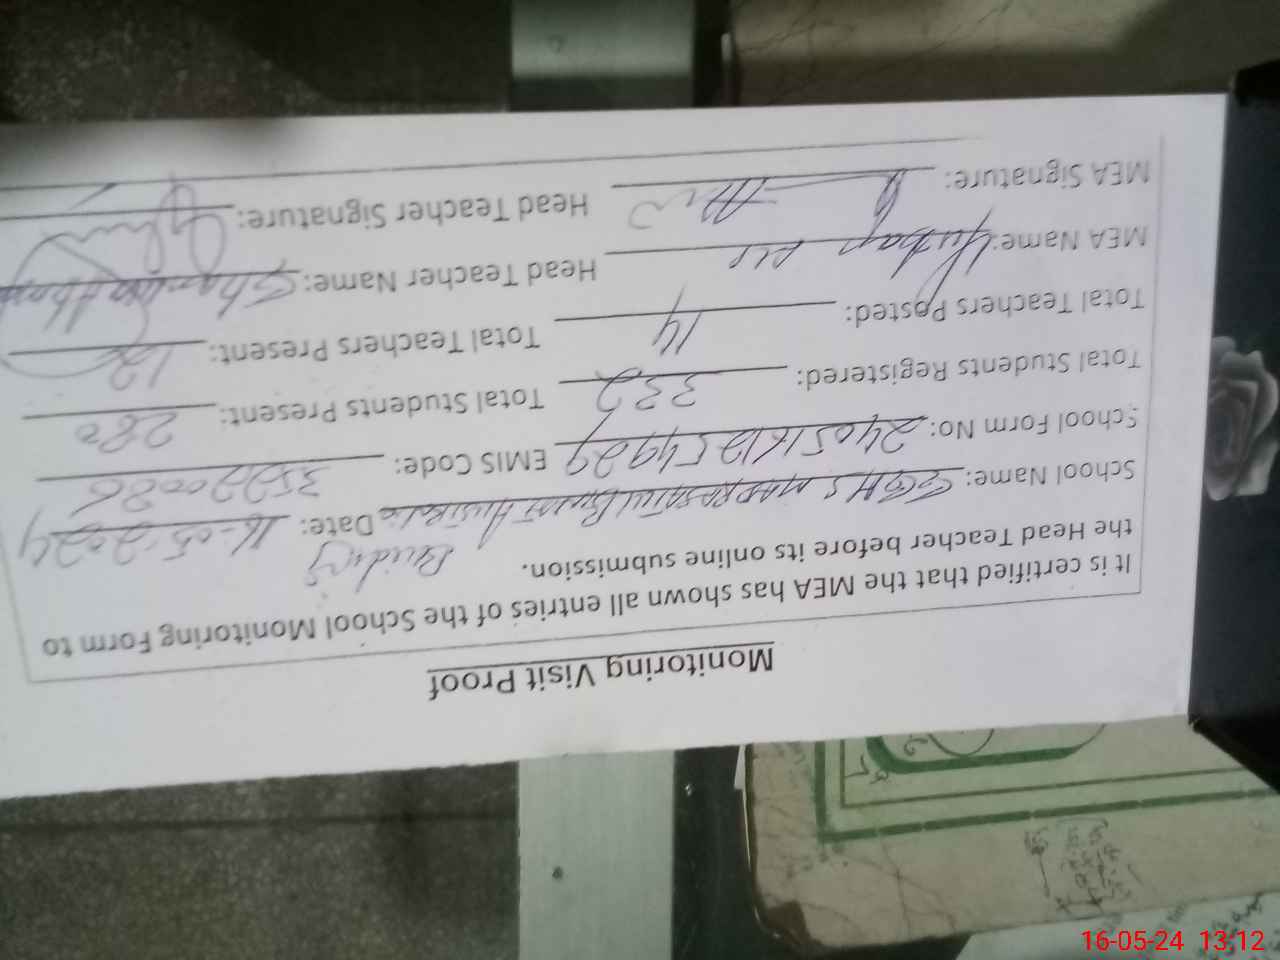 Monitoring Visit Proof
It is certified that the MEA has shown all entries of the School Monitoring Form to
the Head Teacher before its online submission.
School Name: GGHS MADRASATUL BINAT AUSTRALIA Building Date: 16-05-2024
School Form No: 2405 EMIS Code: 35220086
Total Students Registered: 332 Total Students Present: 280
Total Teachers Posted: 14 Total Teachers Present: 12
MEA Name: Head Teacher Name:
MEA Signature: Head Teacher Signature:
16-05-24 13:12